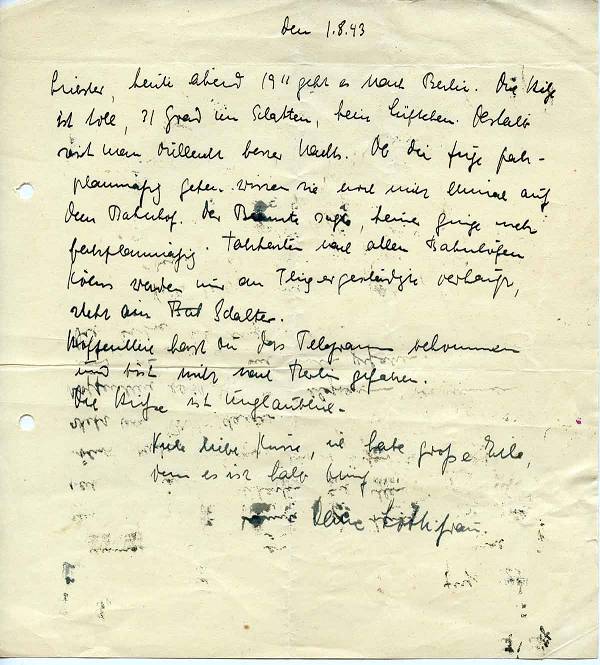 den 1.8.43
Liebster, heute abend 19 11 geht es nach Berlin. Die Hitze
ist toll, 31 Grad im Schatten, kein Lüftchen. Deshalb
reist man vielleicht besser nachts. Ob die Züge fahr-
planmäßig gehen wissen sie noch nicht einmal auf
dem Bahnhof. Der Beamte sagte, keiner ginge mehr
fahrplanmäßig. Fahrkarten nach allen Bahnhöfen
Kölns werden nur an Fliegergeschädigte verkauft,
steht am Schalter.
Hoffentlich hast du das Telegramm bekommen
und bist nicht nach Berlin gefahren.
Die Hitze ist unglaublich.
Viele liebe Küsse, ich habe große Eile,
denn es ist halb
Deine